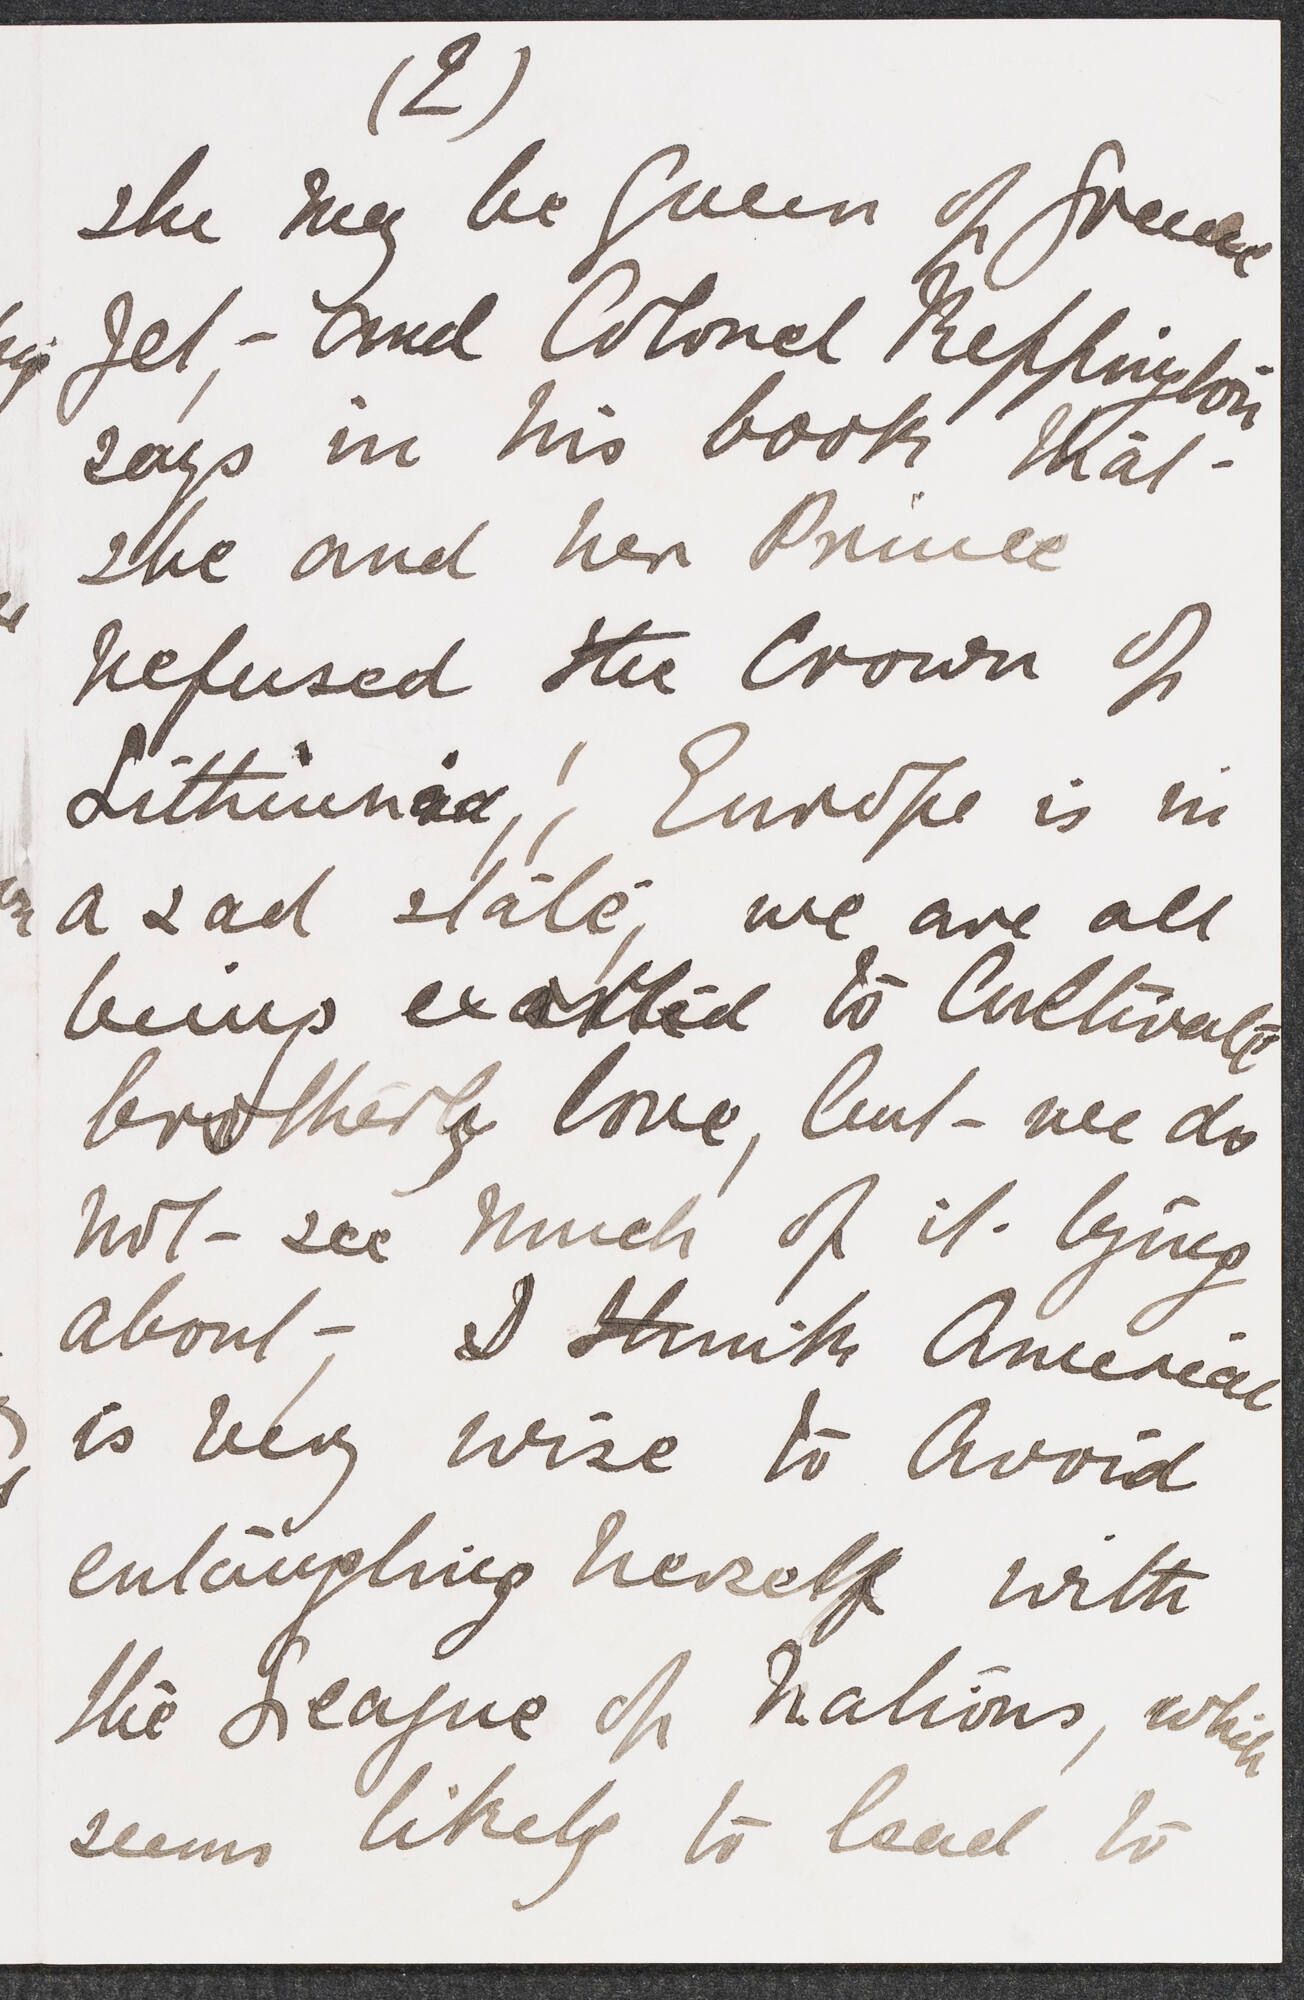 (2)
she may be Queen of Greece
yet, - and Colonel Reppington
says in his book that -
she and her Prince
refused the Crown of
Lithunia,! Europe is in
a sad state, we are all
being exorted to Cultivate
brotherly love, but - we do
not - see much of it lying
about, - I think America
is very wise to avoid
entangling herself with
the League of Nations, which
seems likely to lead to